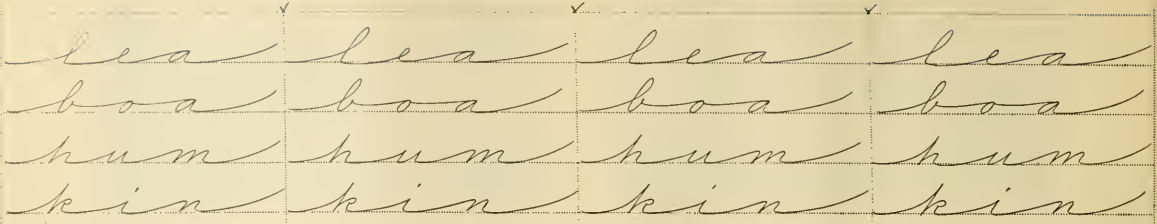 lea lea lea lea
boa boa boa boa
hum hum hum hum
kin kin kin kin